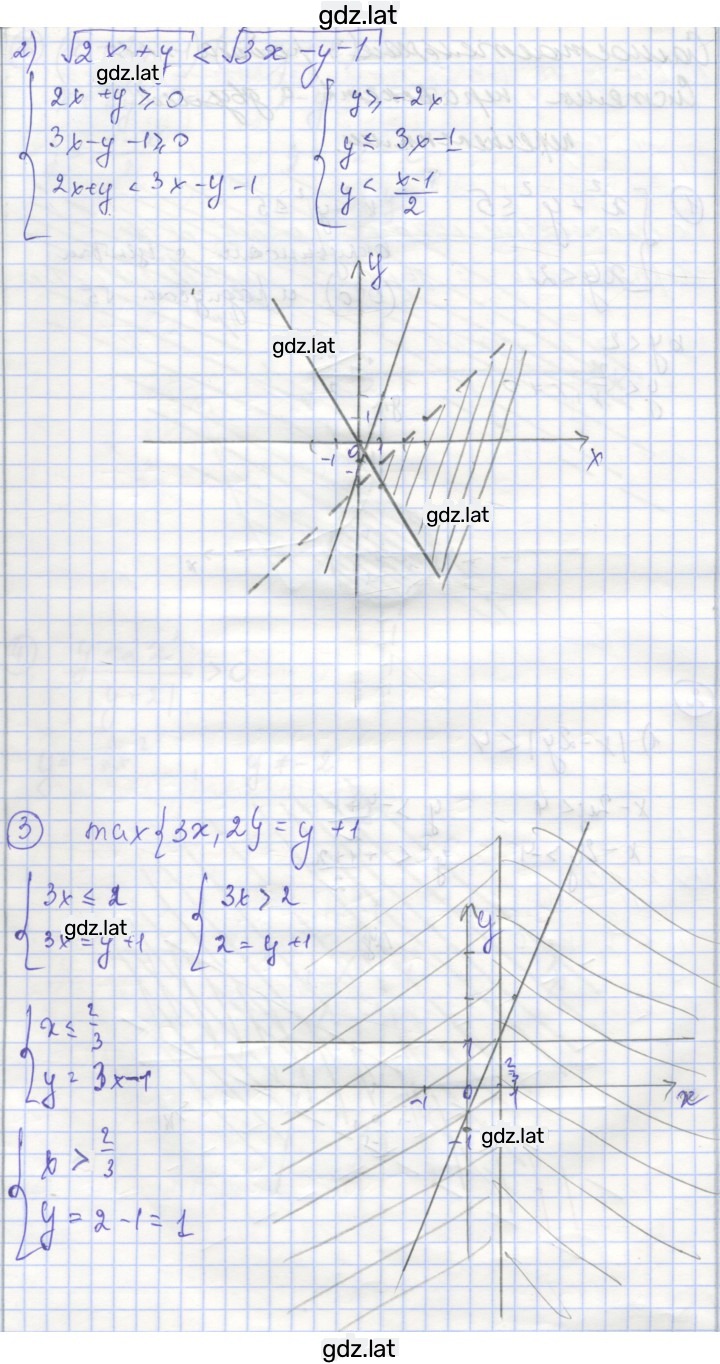 gdz.lat
2) √(2x+y) < √(3x-y-1)
gdz.lat
{ 2x+y ≥ 0
3x-y-1 ≥ 0
2x+y < 3x-y-1
{ y ≥ -2x
y ≤ 3x-1
y < (x-1)/2
y
gdz.lat
1
-1 0 1
-1
x
gdz.lat
③ max{3x, 2} = y+1
{ 3x ≤ 2
gdz.lat
3x = y+1
{ 3x > 2
2 = y+1
{ x ≤ 2/3
y = 3x-1
{ x > 2/3
y = 2-1 = 1
y
1
2/3
-1 0 1
x
-1
gdz.lat
gdz.lat